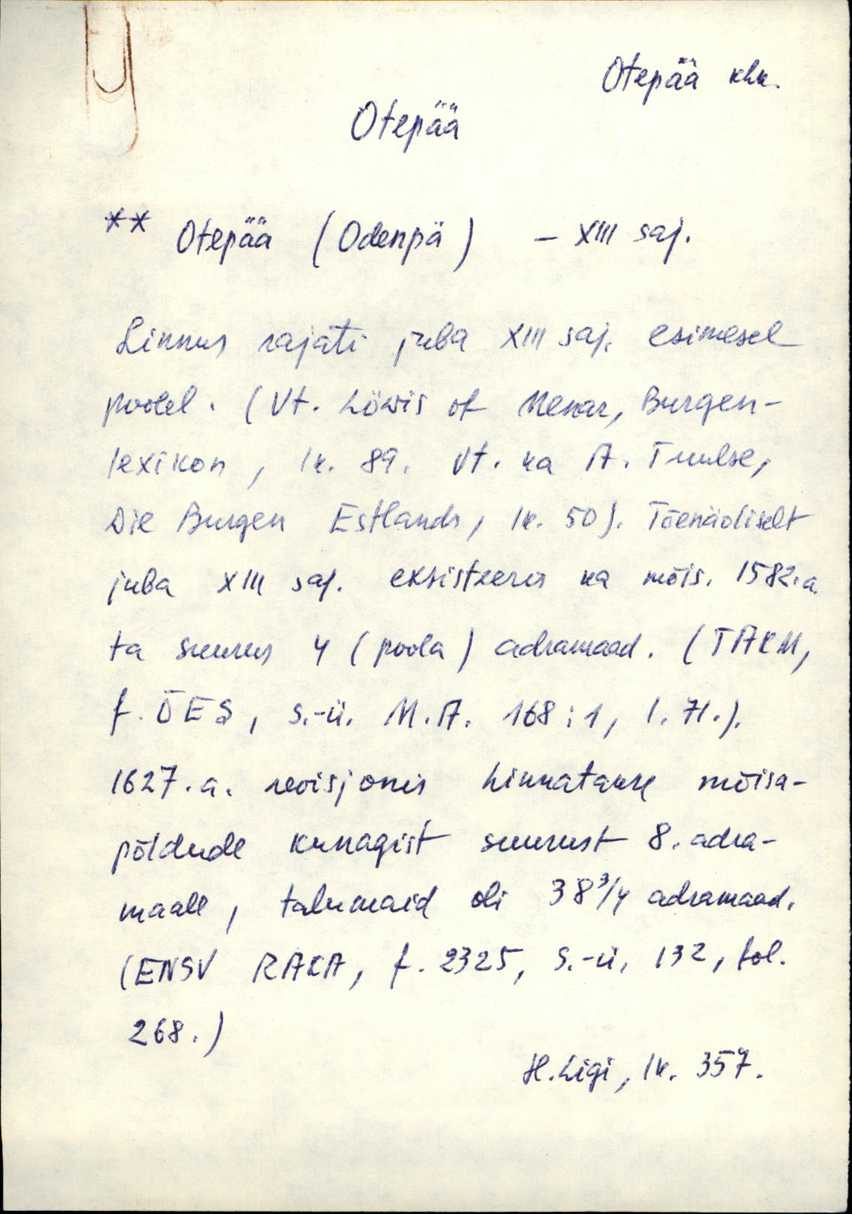 Otepää khk.
Otepää
** Otepää (Odenpä) – XIII saj.
Linnus rajati juba XIII saj. esimesel
poolel. (Vt. Löwis of Menar, Burgen-
lexikon, lk. 89. Vt. ka A. Tuulse,
Die Burgen Estlands, lk. 50). Tõenäoliselt
juba XIII saj. eksisteeris ka mõis. 1582.a.
ta suurus 4 (poola) adramaad. (TAKM,
f. ÕES, s.-ü. M.A. 168:1, l. 71.).
1627.a. revisjonis hinnatakse mõisa-
põldude kunagist suurust 8. adra-
maale, talumaid oli 38 3/4 adramaad.
(ENSV RAKA, f. 2325, s.-ü. 132, fol.
268.)
H. Ligi, lk. 357.